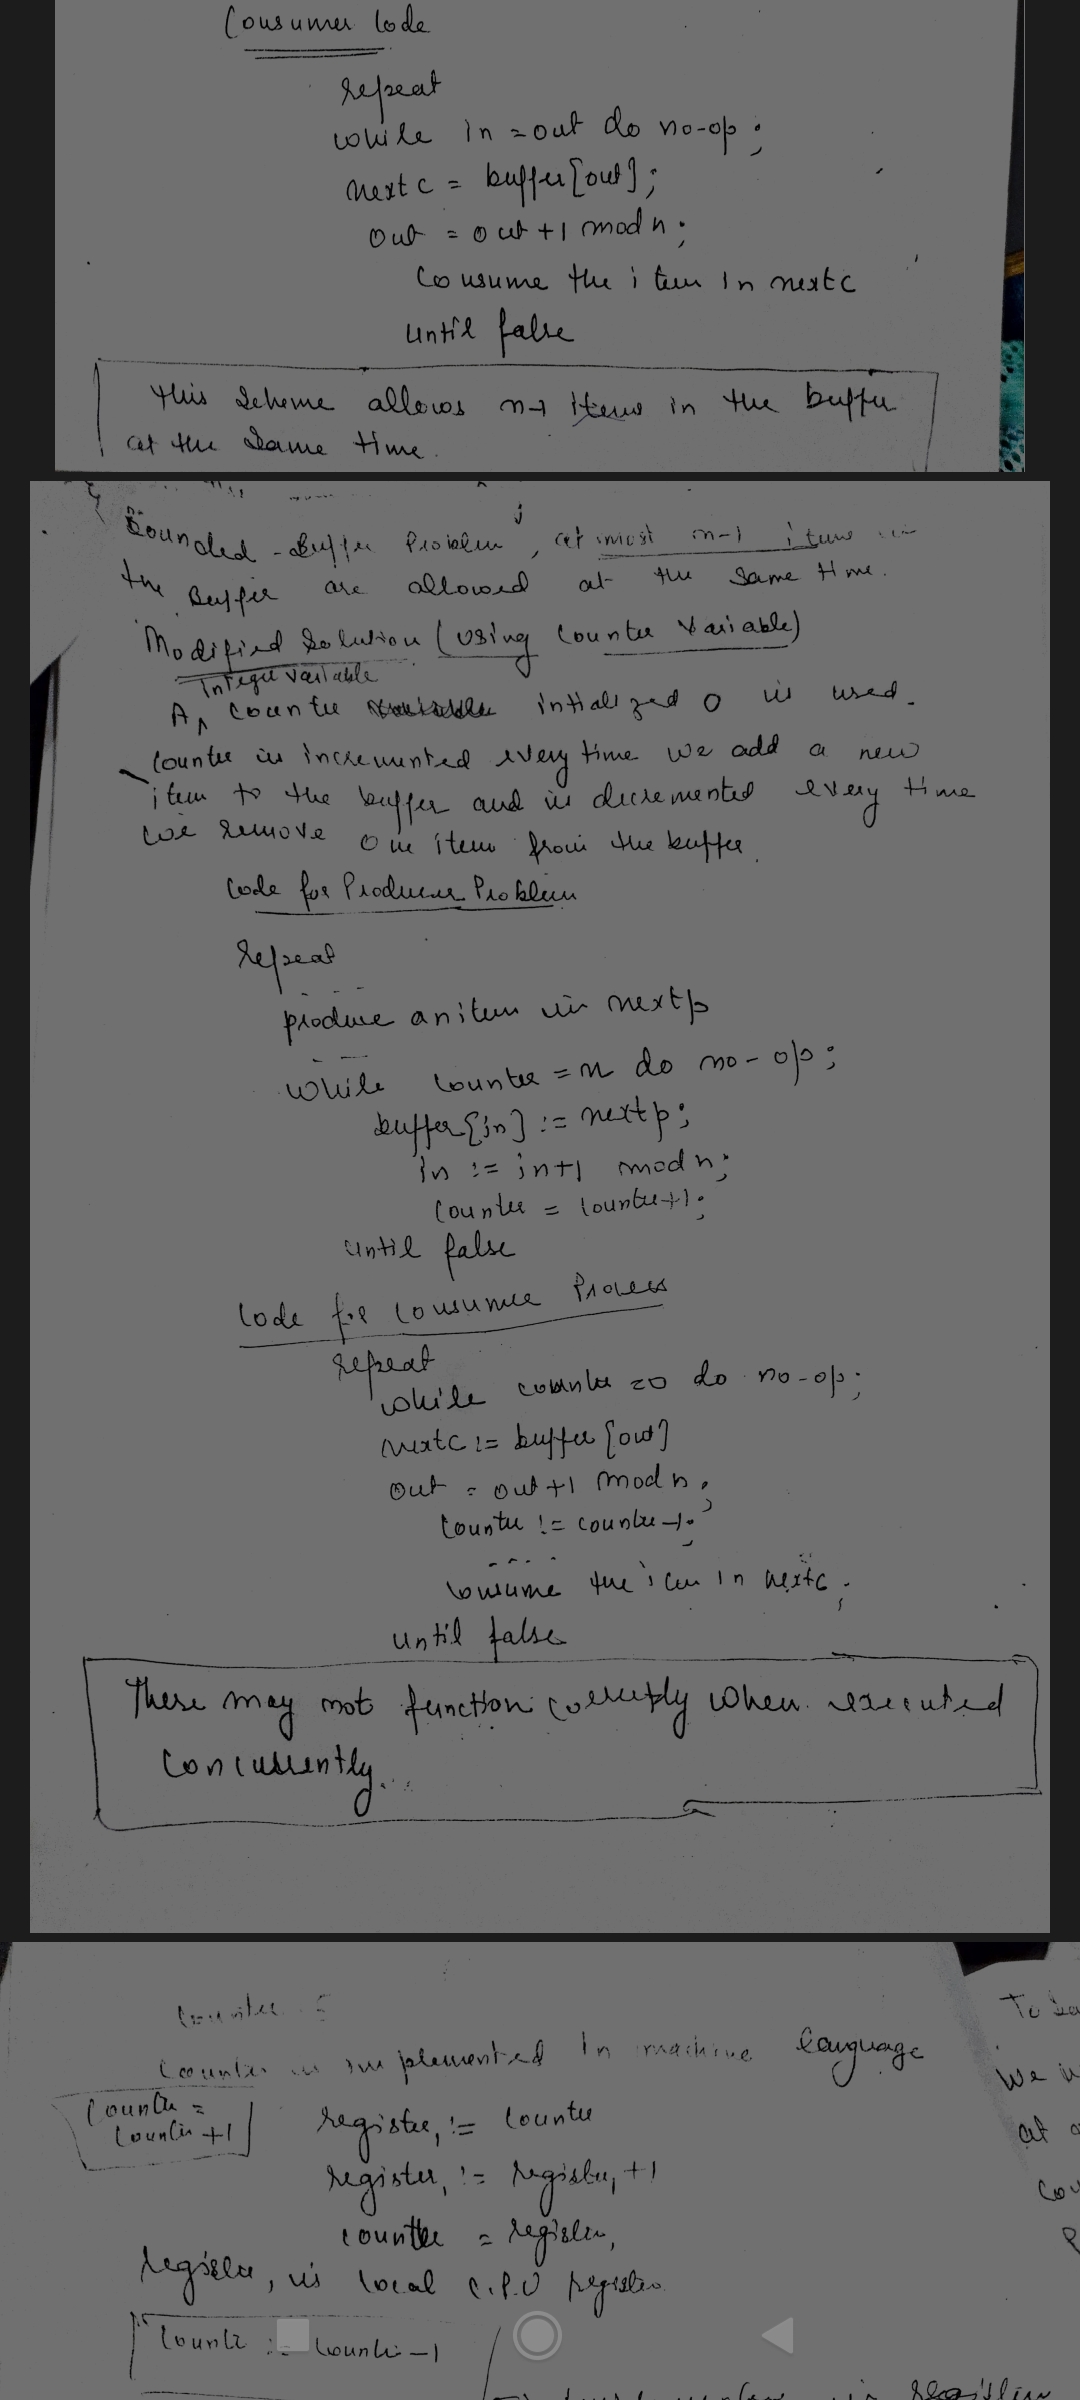 Consumer Code
repeat
while in = out do no-op;
nextc = buffer[out];
out = out+1 mod n;
Consume the item in nextc
until false
This Scheme allows n-1 items in the buffer
at the same time.
Bounded-Buffer Problem, at most n-1 items in
the Buffer are allowed at the same time.
Modified Solution (Using Counter Variable)
Integer variable
A counter intialized 0 is used.
Counter is incremented every time we add a new
item to the buffer and is decremented every time
we remove one item from the buffer.
Code for Producer Problem
repeat
produce an item in nextp
while counter = n do no-op;
buffer[in] := nextp;
in := in+1 mod n;
Counter = Counter+1;
until false
Code for Consumer Process
repeat
while counter = 0 do no-op;
nextc := buffer[out]
out = out+1 mod n;
Counter := counter-1;
....
Consume the item in nextc;
until false
These may not function correctly when executed
concurrently...
Counter 5
Counter is implemented in machine language
Counter =
Counter +1
register1 := Counter
register1 := register1 +1
counter = register1
register1 is local C.P.U register
Counter := Counter -1
To
We
at